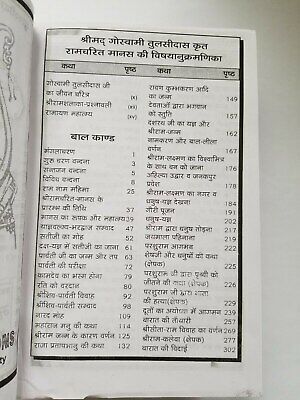 श्रीमद् गोस्वामी तुलसीदास कृत
रामचरित मानस की विषयानुक्रमणिका
कथा पृष्ठ
गोस्वामी तुलसीदास जी
का जीवन चरित्र (x)
श्रीरामशलाका-प्रश्नावली (xi)
रामायण महात्म्य (xv)
बाल काण्ड
मंगलाचरण 1
गुरु चरण वन्दना 3
सन्तजन वन्दना 5
विविध वन्दना 8
राम नाम महिमा 25
श्रीरामचरित-मानस के
प्रारम्भ की तिथि 37
मानस का रूपक और महात्म्य 39
याज्ञवल्क्य-भरद्वाज सम्वाद 47
सतीजी का मोह 52
दक्ष-यज्ञ में सतीजी का जाना 61
पार्वती जी का जन्म और तप 63
पार्वती की परीक्षा 72
कामदेव का भस्म होना 79
रति को वरदान 80
श्रीशिव-पार्वती विवाह 92
श्रीशिव-पार्वती सम्वाद 98
नारद मोह 109
महाराज मनु की कथा 114
श्रीराम जन्म के कारण वर्णन 125
राजा प्रतापभानु की कथा 132
कथा पृष्ठ
रावण कुम्भकरण आदि
का जन्म 149
देवताओं द्वारा भगवान
की स्तुति 157
दशरथ जी का यज्ञ और
श्रीराम-जन्म 162
नामकरण और बाल-लीला
वर्णन 167
श्रीराम-लक्ष्मण का विश्वामित्र
के साथ वन को जाना 176
अहिल्या उद्धार व जनकपुर
प्रवेश 178
श्रीराम-लक्ष्मण का नगर व
धनुष-यज्ञ देखना 184
गौरी पूजन 191
धनुष-यज्ञ 202
श्रीराम द्वारा धनुष तोड़ना 217
जयमाला पहिनाना 219
परशुराम आगमन 222
शेषजी और धनुषों की कथा
(क्षेपक) 225
परशुराम जी द्वारा पृथ्वी को
जीतने की कथा (क्षेपक) 226
परशुराम जी द्वारा माता
की हत्या (क्षेपक) 229
दूतों का अयोध्या में आगमन 239
बारात की तैयारी 257
श्रीसीता-राम विवाह का वर्णन 269
श्रीराम-कलेवा (क्षेपक) 277
बारात की विदाई 302